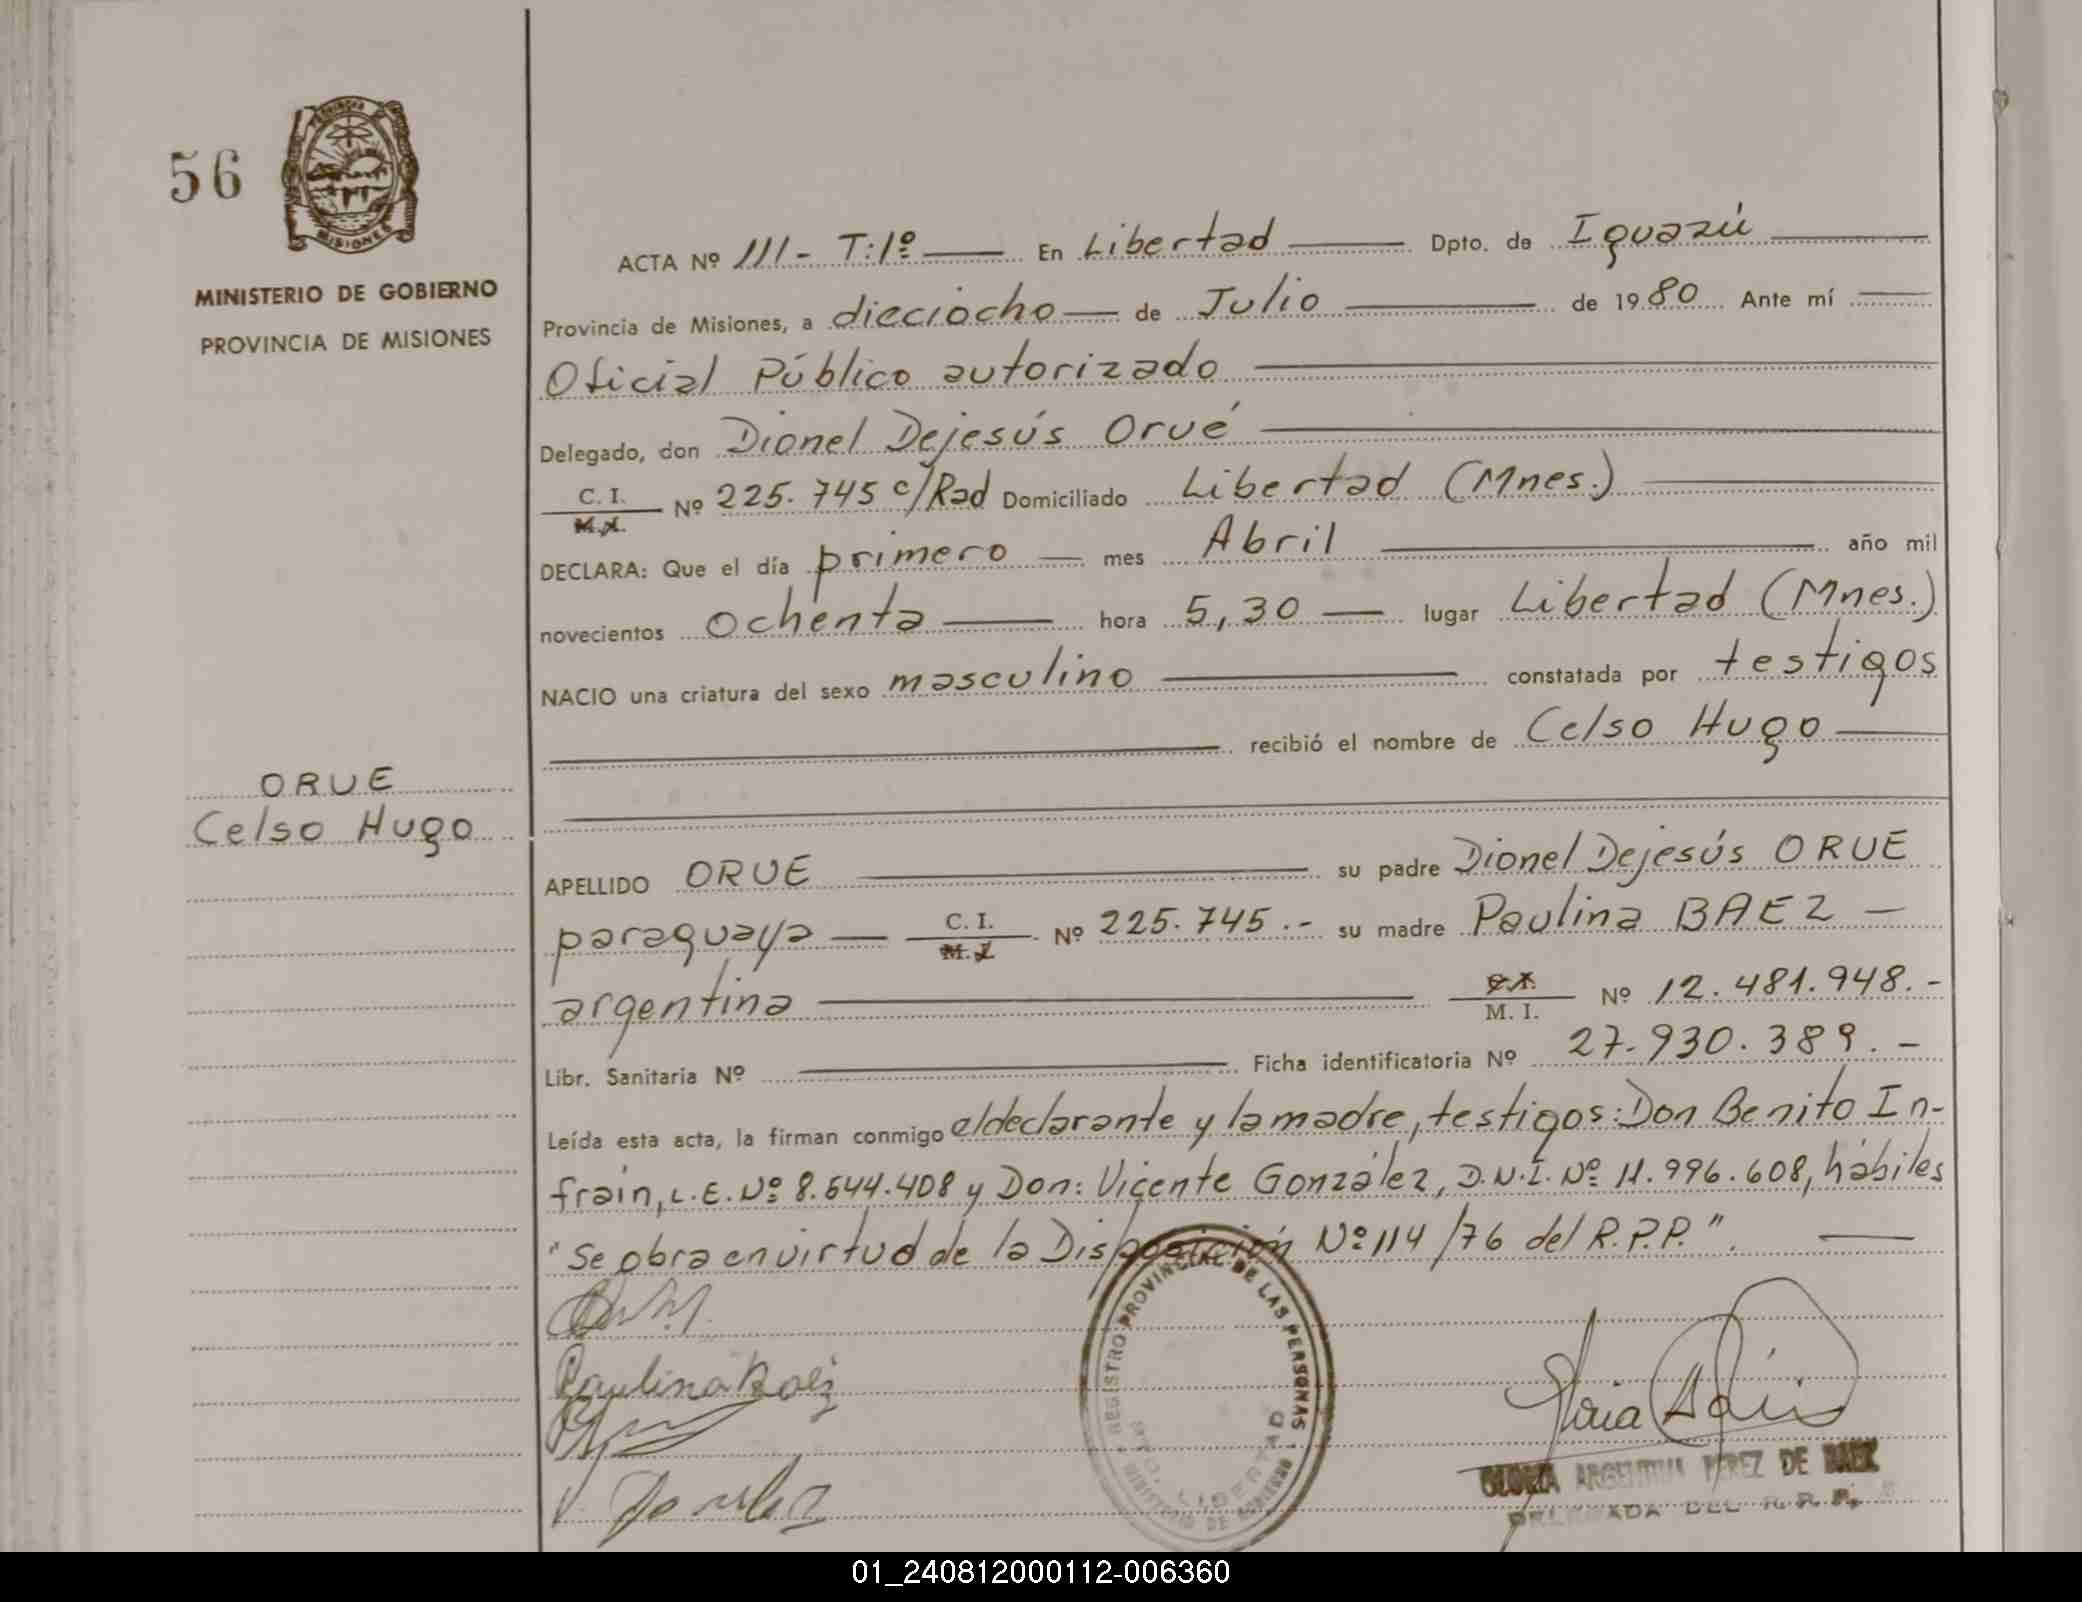 56
MISIONES
MINISTERIO DE GOBIERNO
PROVINCIA DE MISIONES
ORUE
Celso Hugo
ACTA Nº 111- T:1º En Libertad Dpto. de Iguazú
Provincia de Misiones, a dieciocho de Julio de 1980 Ante mí
Oficial Público autorizado
Delegado, don Dionel Dejesús Orué
C. I. M.I. Nº 225.745 c/Rad Domiciliado Libertad (Mnes.)
DECLARA: Que el día primero mes Abril año mil
novecientos ochenta hora 5,30 lugar Libertad (Mnes.)
NACIO una criatura del sexo masculino constatada por testigos
recibió el nombre de Celso Hugo
APELLIDO ORUE su padre Dionel Dejesús ORUE
paraguaya C. I. M. I. Nº 225.745.- su madre Paulina BAEZ
argentina C.I. M. I. Nº 12.481.948.-
Libr. Sanitaria Nº Ficha identificatoria Nº 27.930.389.-
Leída esta acta, la firman conmigo el declarante y la madre, testigos: Don Benito In-
fraín, L.E. Nº 8.544.408 y Don: Vicente González, D.N.I. Nº 11.996.608, hábiles
"Se obra en virtud de la Disposición Nº 114/76 del R.P.P.".
Paulina Baez
REGISTRO PROVINCIAL DE LAS PERSONAS
MINISTERIO DE GOBIERNO
LIBERTAD
GLORIA ARGENTINA PEREZ DE BAEZ
DELEGADA DEL R. R. P.
01_240812000112-006360